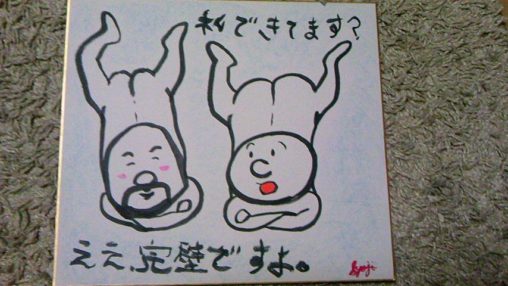 私できてます?
ええ、完璧ですよ。